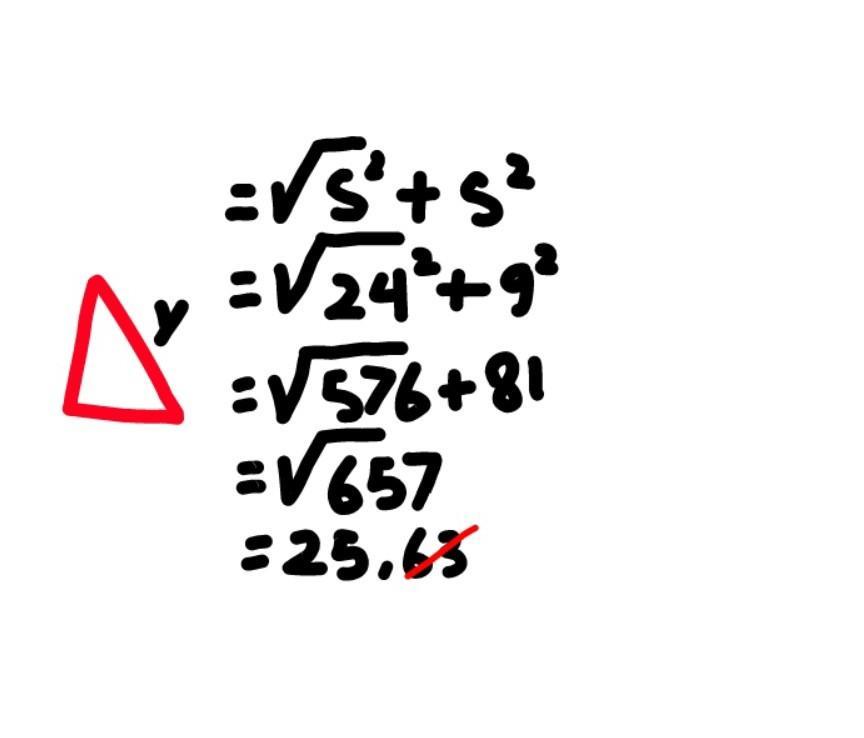 = √s² + s²
y = √24² + 9²
= √576 + 81
= √657
= 25.63